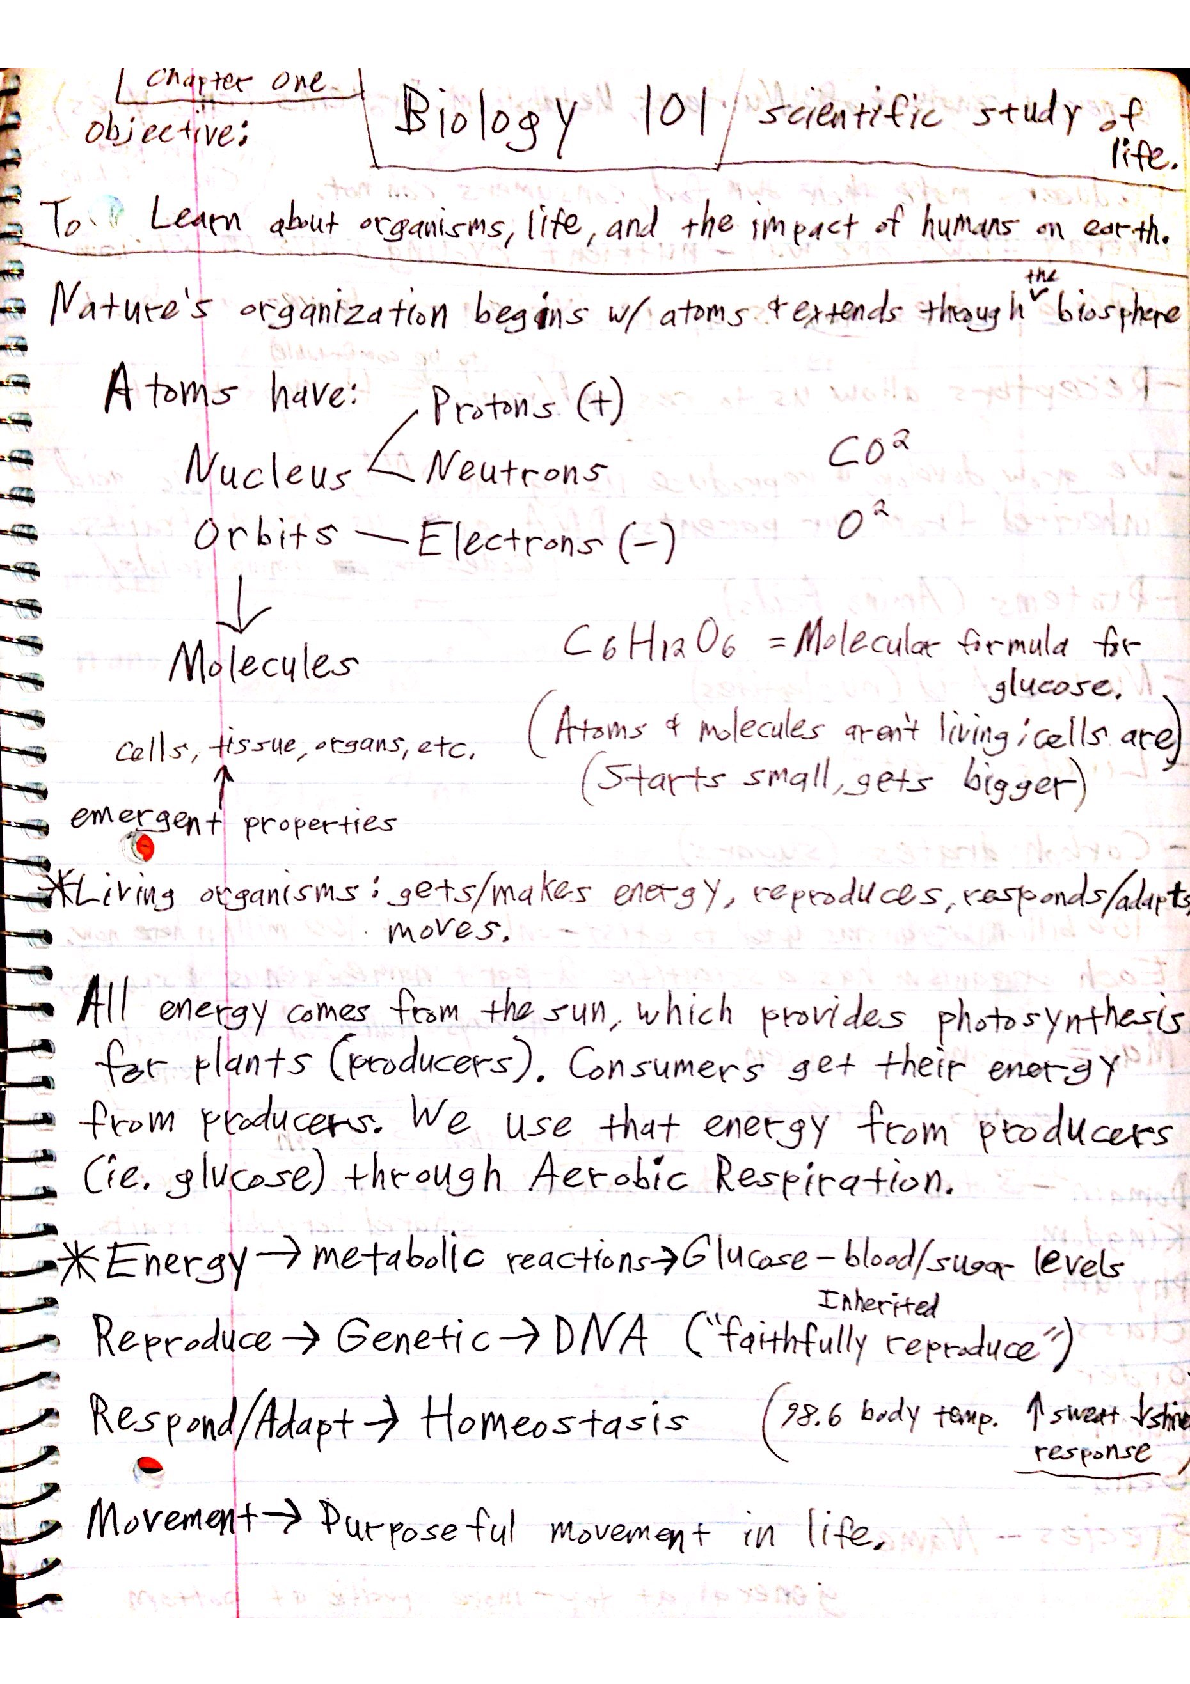 Chapter one
objective:
Biology 101
scientific study of
life.
To Learn about organisms, life, and the impact of humans on earth.
Nature's organization begins w/ atoms & extends through the biosphere
Atoms have:
Protons (+)
Nucleus
Neutrons
CO²
Orbits — Electrons (-)
O²
↓
Molecules
C6H12O6 = Molecular formula for
glucose.
(Atoms & molecules aren't living; cells are)
cells, tissue, organs, etc.
(Starts small, gets bigger)
↑
emergent properties
*Living organisms: gets/makes energy, reproduces, responds/adapts,
moves.
All energy comes from the sun, which provides photosynthesis
for plants (producers). Consumers get their energy
from producers. We use that energy from producers
(ie. glucose) through Aerobic Respiration.
*Energy → metabolic reactions → Glucose – blood/sugar levels
Inherited
Reproduce → Genetic → DNA ("faithfully reproduce")
Respond/Adapt → Homeostasis (98.6 body temp. ↑ sweat ↓
response)
Movement → Purposeful movement in life.